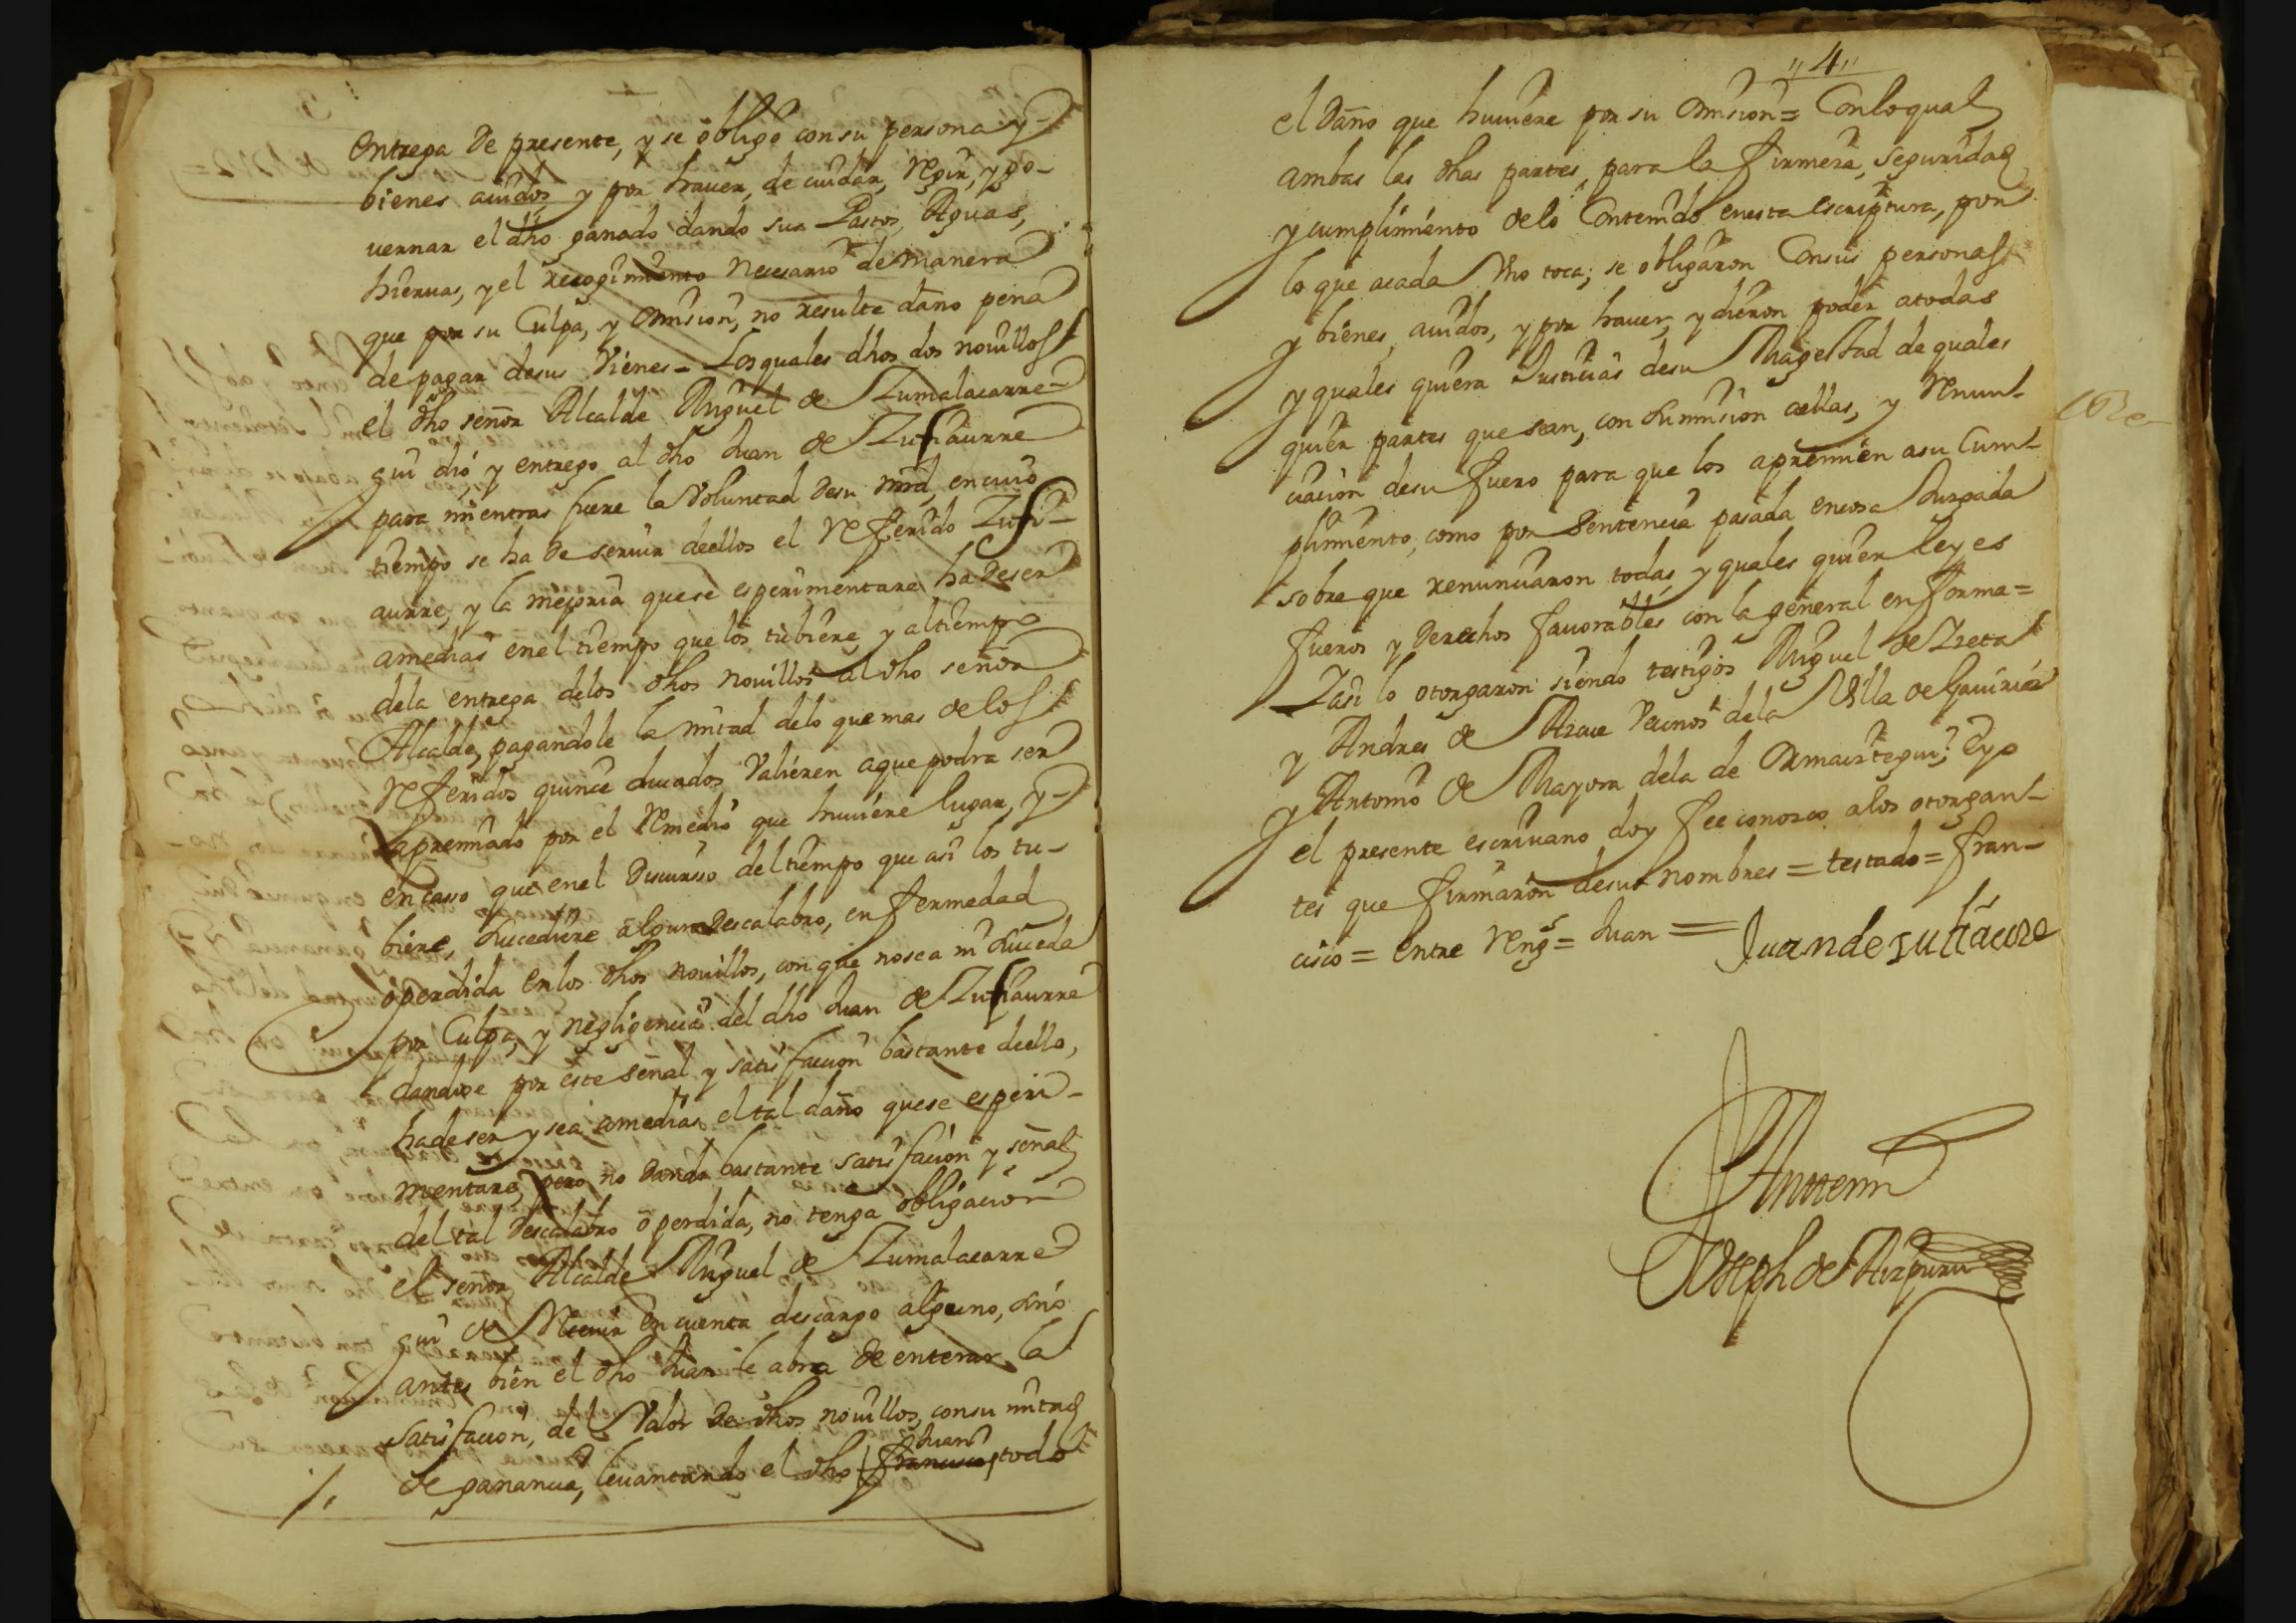 entrega de presente, y se obligo con su persona y
bienes auidos y por hauer, de cuidar, Regir, y go-
uernar el dho ganado dando sus Pastos, Aguas,
hieruas, y el recogimiento necesario de manera
que por su Culpa, y Omision, no resulte daño pena
de pagar de sus Vienes - Los quales dhos dos nouillos
el dho señor Alcalde Miguel de Zumalacarre-
gui dió, y entrego al dho Juan de Zufiaurre
para mientras fuere la Voluntad de su mrd, en cuio
tiempo se ha de seruir de ellos el Referido Zufi-
aurre, y la mejoria que se esperimentare ha de ser
a medias en el tiempo que los tubiere, y al tiempo
de la entrega de los dhos nouillos al dho señor
Alcalde, pagandole la mitad de lo que mas de los
Referidos quince ducados Valieren a que podra ser
apremiado por el Remedio que huuiere lugar, y
en casso que en el Discurso del tiempo que asi los tu-
biere, Sucediere algun descalabro, enfermedad
o perdida en los dhos nouillos, con que no sea ni Suceda
por Culpa, y negligencia del dho Juan de Zufiaurre
dandose por este señal y satisfaccion bastante de ello,
ha de ser y sea a medias el tal daño que se esperi-
mentare, pero no dando bastante satisfacion y señal
del tal descalabro o perdida, no tenga obligacion
el señor Alcalde Miguel de Zumalacarre
gui de Reciuir en cuenta descargo alguno, Sino
antes bien el dho Juan le abra de enterar la
satisfacion, del Valor de dhos nouillos, con su mitad
de ganancia, leuantando el dho Francisco Juan todo
"4"
el daño que huuiere por su Omision = Con lo qual
ambas las dhas partes, para la firmeza, seguridad
y cumplimiento de lo Contenido en esta escriptura, por
lo que a cada Vno toca; se obligaron Con sus personas
y bienes, auidos, y por hauer, y dieron poder a todas
y quales quiera Justicias de su Magestad de quales
quier partes que sean, con Sumision a ellas, y Renun-
ciacion de su fuero para que los apremien a su Cum-
plimiento, como por Sentencia pasada en cosa Juzgada
sobre que renunciaron todas, y quales quier leyes
fueros y derechos fauorables con la general en forma =
Y asi lo otorgaron siendo testigos Miguel de Ireta
y Andres de Arave Vecinos de la Villa de Gauiria
y Antonio de Mayora de la de Ormaiztegui; E yo
el presente escriuano doy fee conozco a los otorgan-
tes que firmaron de sus nombres = testado = fran-
cisco = entre Rengs = Juan =
Juan de sufiaure
Ante mi
Joseph de Aizpuru